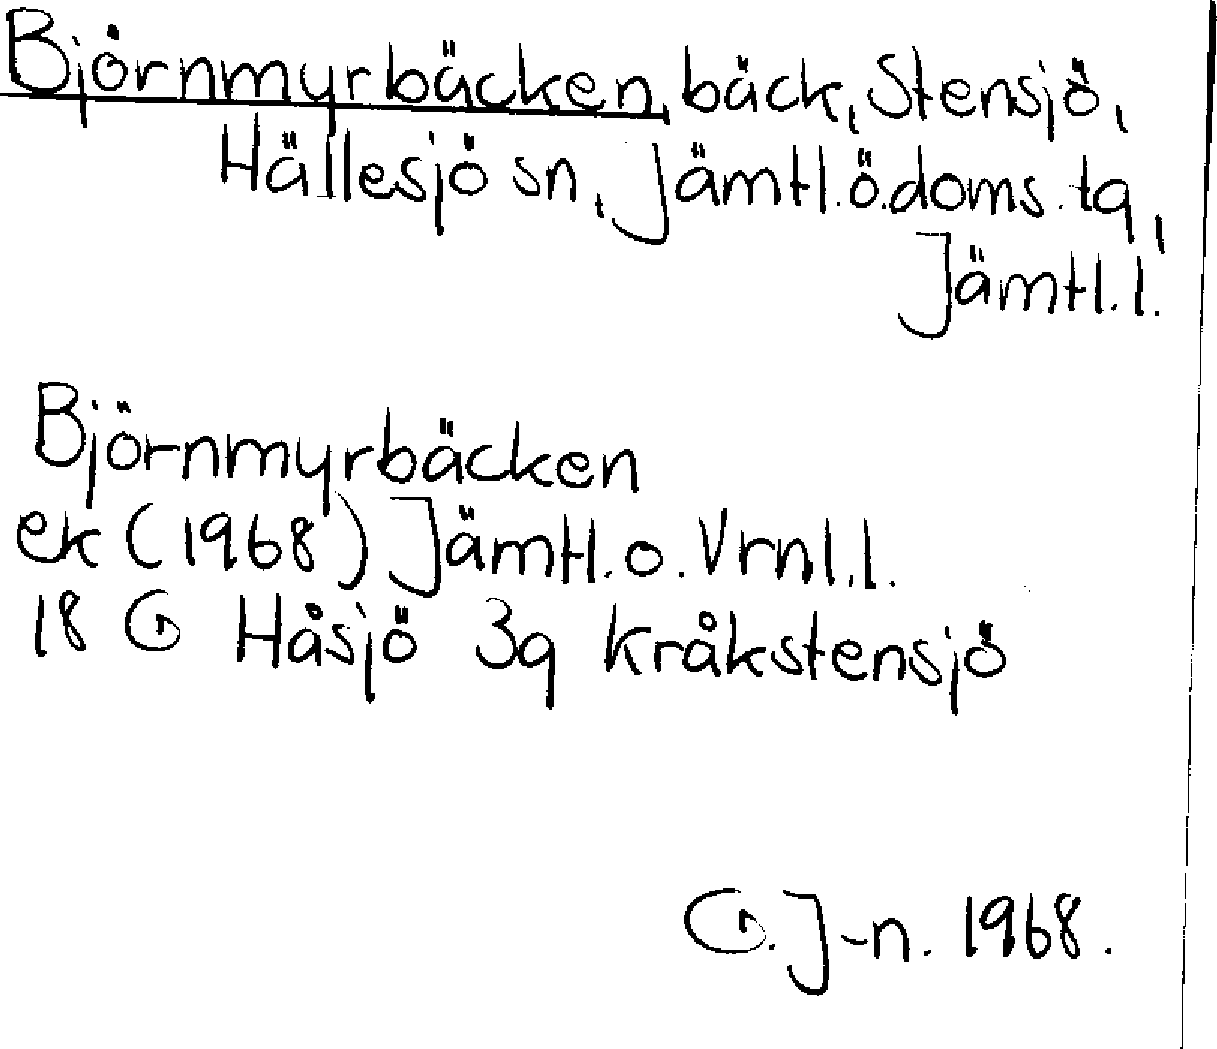 Björnmyrbäcken, bäck, Stensjö,
Hällesjö sn, Jämtl. ö. doms. tq,
Jämtl. l.
Björnmyrbäcken
ek (1968) Jämtl. o. Vrnl. l.
18 G Håsjö 3q Kråkstensjö
G. J-n. 1968.